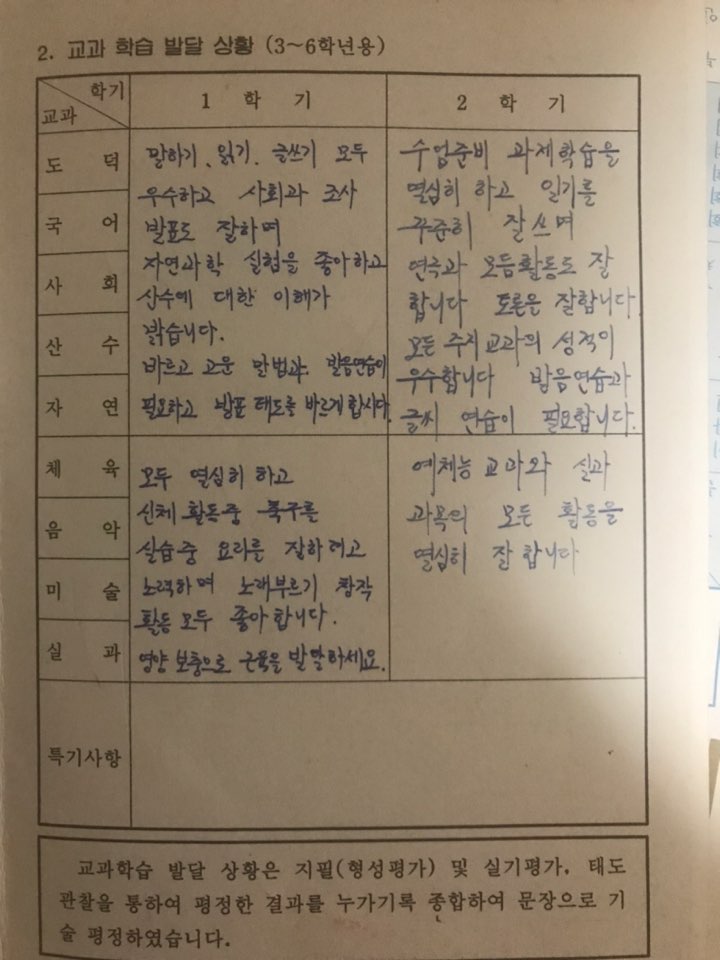 2. 교과 학습 발달 상황 (3~6학년용)
학기
교과
1 학 기
2 학 기
도 덕
국 어
사 회
산 수
자 연
말하기, 읽기, 글쓰기 모두
우수하고 사회과 조사
발표도 잘하며
자연과학 실험을 좋아하고
산수에 대한 이해가
밝습니다.
바르고 고운 말법과. 발음연습이
필요하고 발표 태도를 바르게합시다.
수업준비 과제학습을
열심히 하고 일기를
꾸준히 잘쓰며
연극과 모듬활동도 잘
합니다 토론을 잘합니다.
모든 주지교과의 성적이
우수합니다 발음연습과
글씨 연습이 필요합니다.
체 육
음 악
미 술
실 과
모두 열심히 하고
신체 활동중 축구를
실습중 요리를 잘하려고
노력하며 노래부르기 창작
활동 모두 좋아합니다.
영양 보충으로 근육을 발달하세요.
예체능 교과와 실과
과목의 모든 활동을
열심히 잘 합니다
특기사항
교과학습 발달 상황은 지필(형성평가) 및 실기평가, 태도
관찰을 통하여 평정한 결과를 누가기록 종합하여 문장으로 기
술 평정하였습니다.